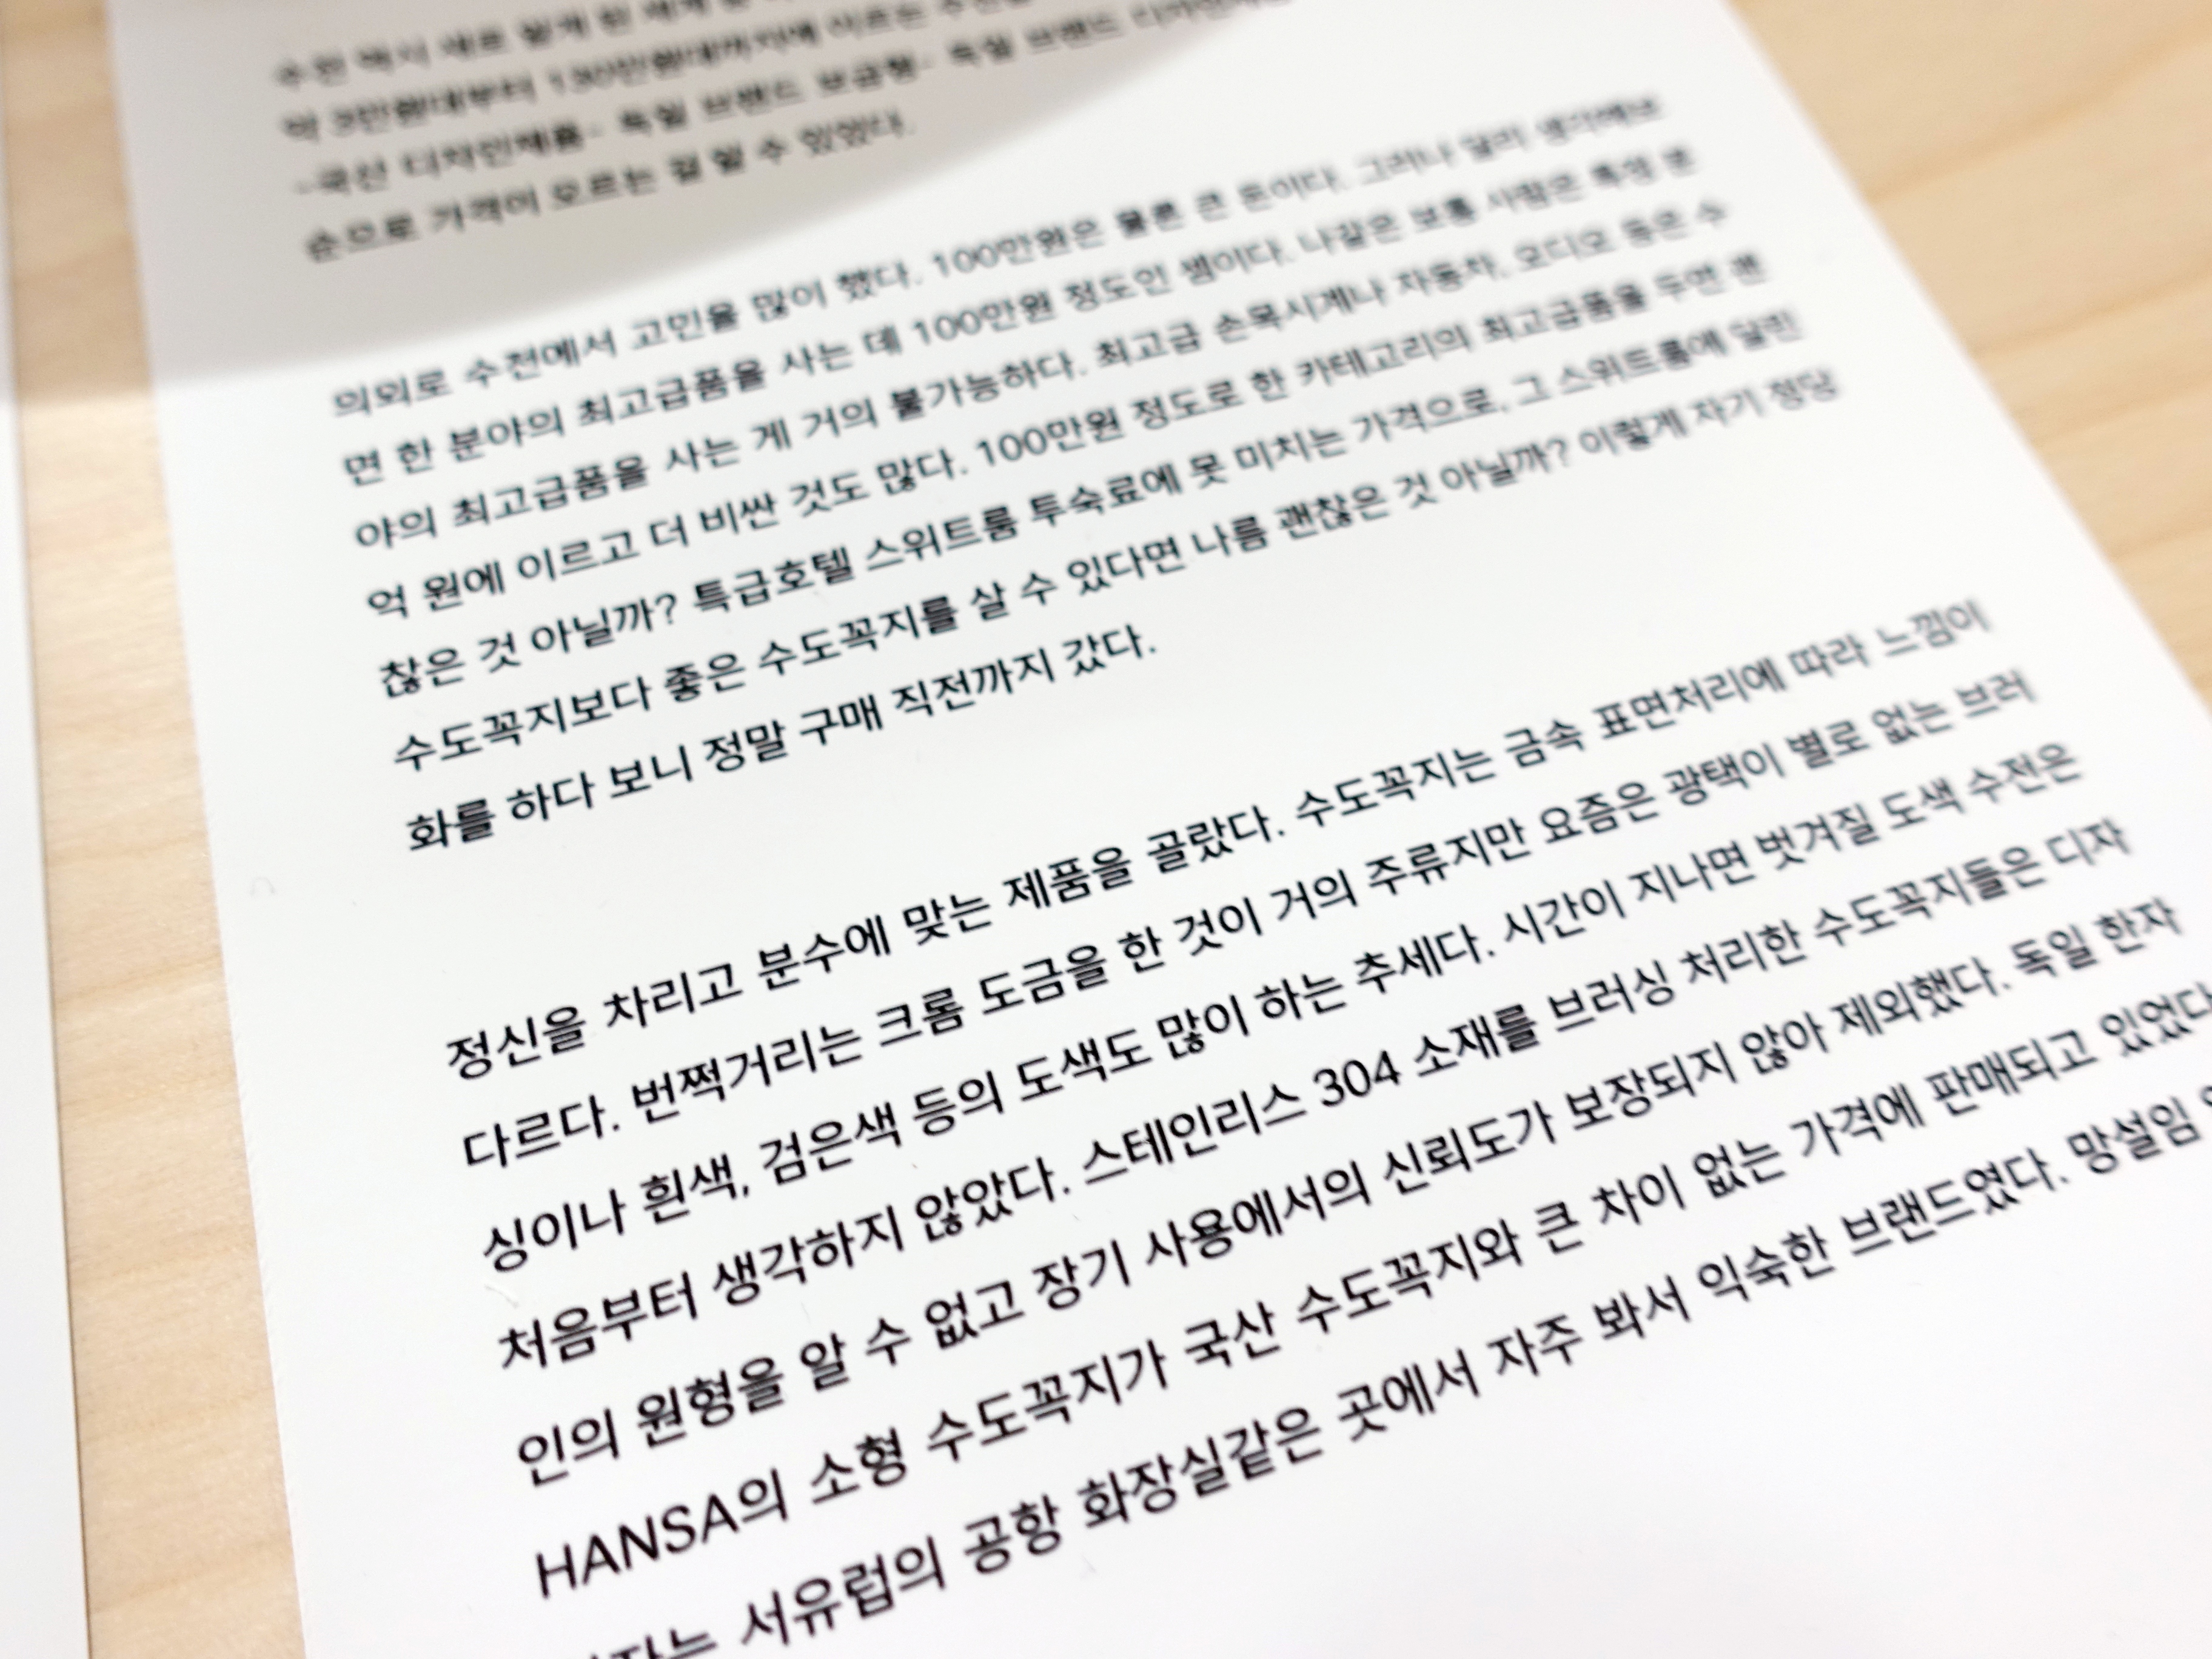 약 3만원대부터 130만원대까지에 이르는
-국산 디자인제품- 독일 브랜드 보급형- 독일 브랜드
순으로 가격이 오르는 걸 알 수 있었다.
의외로 수전에서 고민을 많이 했다. 100만원은 물론 큰 돈이다. 그러나 달리 생각해보
면 한 분야의 최고급품을 사는 데 100만원 정도인 셈이다. 나같은 보통 사람은 특정 분
야의 최고급품을 사는 게 거의 불가능하다. 최고급 손목시계나 자동차, 오디오 등은 수
억 원에 이르고 더 비싼 것도 많다. 100만원 정도로 한 카테고리의 최고급품을 두면 괜
찮은 것 아닐까? 특급호텔 스위트룸 투숙료에 못 미치는 가격으로, 그 스위트룸에 달린
수도꼭지보다 좋은 수도꼭지를 살 수 있다면 나름 괜찮은 것 아닐까? 이렇게 자기 정당
화를 하다 보니 정말 구매 직전까지 갔다.
정신을 차리고 분수에 맞는 제품을 골랐다. 수도꼭지는 금속 표면처리에 따라 느낌이
다르다. 번쩍거리는 크롬 도금을 한 것이 거의 주류지만 요즘은 광택이 별로 없는 브러
싱이나 흰색, 검은색 등의 도색도 많이 하는 추세다. 시간이 지나면 벗겨질 도색 수전은
처음부터 생각하지 않았다. 스테인리스 304 소재를 브러싱 처리한 수도꼭지들은 디자
인의 원형을 알 수 없고 장기 사용에서의 신뢰도가 보장되지 않아 제외했다. 독일 한자
HANSA의 소형 수도꼭지가 국산 수도꼭지와 큰 차이 없는 가격에 판매되고 있었다
서유럽의 공항 화장실같은 곳에서 자주 봐서 익숙한 브랜드였다. 망설임